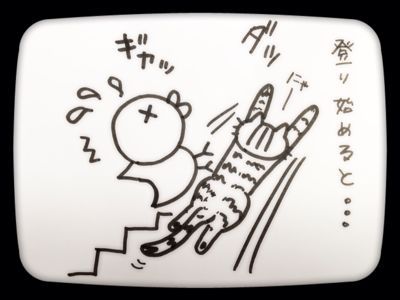 登り始めると・・・
ダッ
にゃー
ギャッ